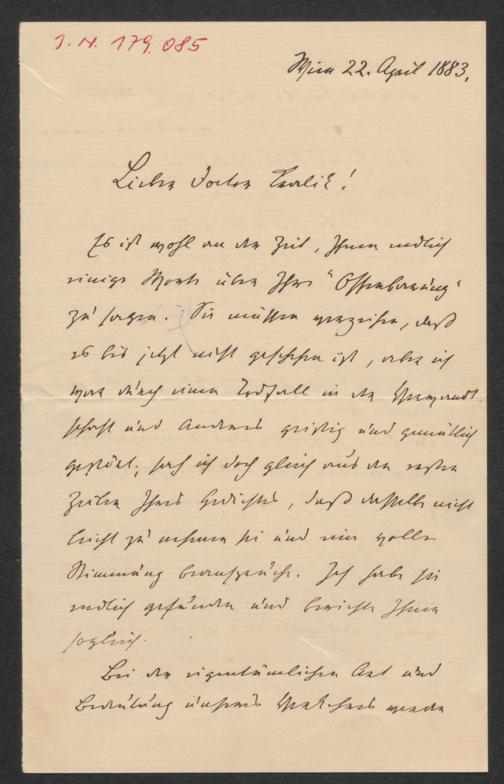 I. N. 179.085
Wien 22. April 1883.
Lieber Doctor Kralik!
Es ist wohl an der Zeit, Ihnen endlich
einige Worte über Ihre "Offenbarung"
zu sagen. Sie müssen verzeihen, daß
es bis jetzt nicht geschehen ist, aber ich
war durch einen Todfall in der Verwandt-
schaft und Anderes geistig und gemütlich
gestört; sah ich doch gleich aus den ersten
Zeilen Ihres Gedichtes, daß dasselbe nicht
leicht zu nehmen sei und eine volle
Stimmung beanspruche. Ich habe sie
endlich gefunden und berichte Ihnen
sogleich.
Bei der eigentümlichen Art und
Bedeutung unseres Verkehres werden